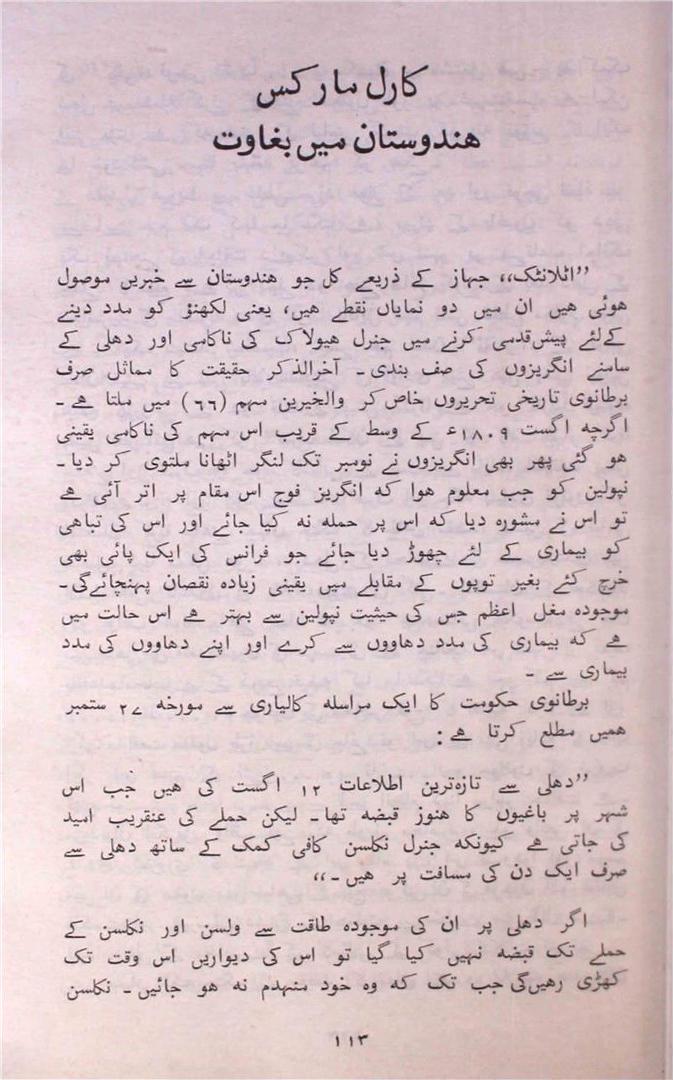 کارل مارکس
ھندوستان میں بغاوت
”اٹلانٹک،، جہاز کے ذریعے کل جو ھندوستان سے خبریں موصول
ھوئی ھیں ان میں دو نمایاں نقطے ھیں، یعنی لکھنؤ کو مدد دینے
کےلئے پیش‌قدمی کرنے میں جنرل ھیولاک کی ناکامی اور دھلی کے
سامنے انگریزوں کی صف بندی۔ آخرالذکر حقیقت کا مماثل صرف
برطانوی تاریخی تحریروں خاص کر والخیرین مہم (۶۶) میں ملتا ھے۔
اگرچہ اگست ۱۸۰۹ء کے وسط کے قریب اس مہم کی ناکامی یقینی
ھو گئی پھر بھی انگریزوں نے نومبر تک لنگر اٹھانا ملتوی کر دیا۔
نپولین کو جب معلوم ھوا کہ انگریز فوج اس مقام پر اتر آئی ھے
تو اس نے مشورہ دیا کہ اس پر حملہ نہ کیا جائے اور اس کی تباھی
کو بیماری کے لئے چھوڑ دیا جائے جو فرانس کی ایک پائی بھی
خرچ کئے بغیر توپوں کے مقابلے میں یقینی زیادہ نقصان پہنچائےگی۔
موجودہ مغل اعظم جس کی حیثیت نپولین سے بہتر ھے اس حالت میں
ھے کہ بیماری کی مدد دھاووں سے کرے اور اپنے دھاووں کی مدد
بیماری سے۔
برطانوی حکومت کا ایک مراسلہ کالیاری سے مورخہ ۲۷ ستمبر
ھمیں مطلع کرتا ھے:
”دھلی سے تازہ‌ترین اطلاعات ۱۲ اگست کی ھیں جب اس
شہر پر باغیوں کا ھنوز قبضہ تھا۔ لیکن حملے کی عنقریب امید
کی جاتی ھے کیونکہ جنرل نکلسن کافی کمک کے ساتھ دھلی سے
صرف ایک دن کی مسافت پر ھیں۔،،
اگر دھلی پر ان کی موجودہ طاقت سے ولسن اور نکلسن کے
حملے تک قبضہ نہیں کیا گیا تو اس کی دیواریں اس وقت تک
کھڑی رھیں‌گی جب تک کہ وہ خود منہدم نہ ھو جائیں۔ نکلسن
۱۱۳